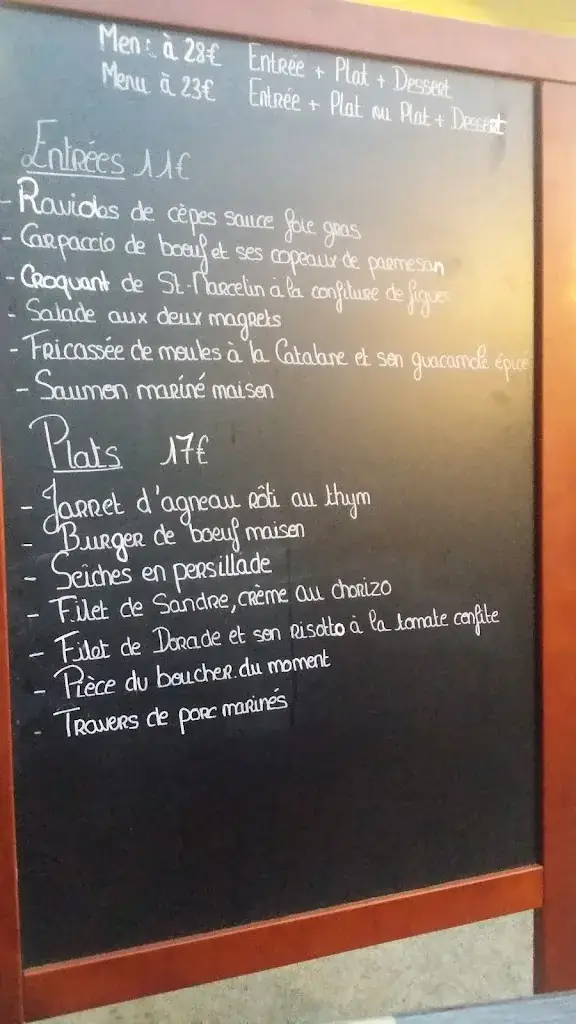 Menu à 28€ Entrée + Plat + Dessert
Menu à 23€ Entrée + Plat ou Plat + Dessert
Entrées 11€
- Raviolos de cèpes sauce foie gras
- Carpaccio de boeuf et ses copeaux de parmesan
- Croquant de St-Marcelin à la confiture de figues
- Salade aux deux magrets
- Fricassée de moules à la Catalane et son guacamole épicé
- Saumon mariné maison
Plats 17€
- Jarret d'agneau rôti au thym
- Burger de boeuf maison
- Seiches en persillade
- Filet de Sandre, crème au chorizo
- Filet de Dorade et son risotto à la tomate confite
- Pièce du boucher du moment
- Travers de porc marinés